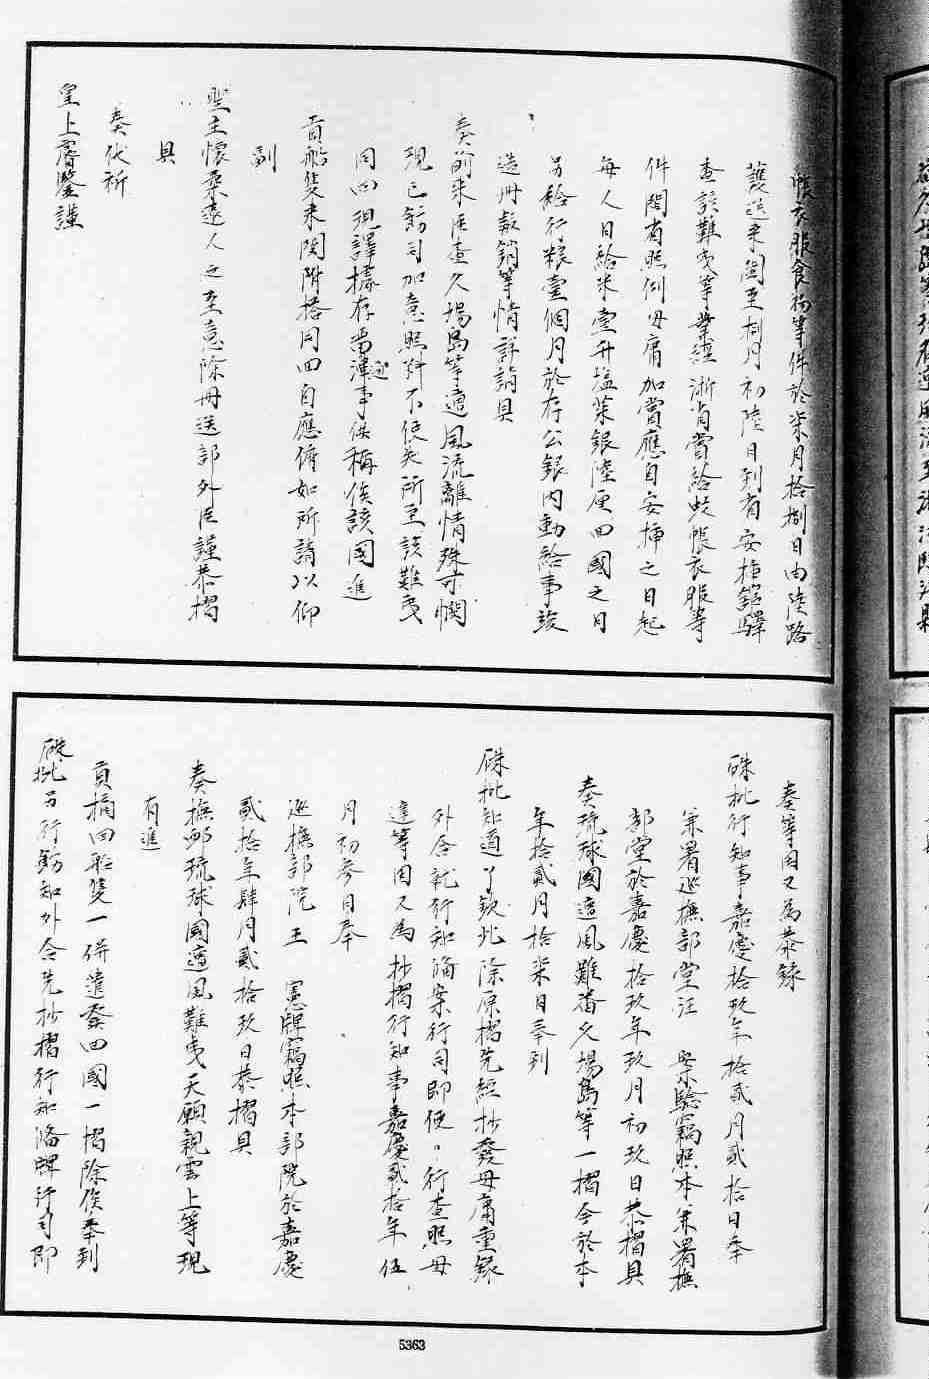 帳衣服食物等件於柒月拾捌日由陸路
護送來閩至捌月初陸日到省安插館驛
查該難夷等業經浙省賞給蚊帳衣服等
件閩省照例毋庸加賞應自安插之日起
每人日給米壹升塩菜銀陸厘回國之日
另給行粮壹個月於存公銀內動給事竣
造冊報銷等情詳請具
奏前來臣查久場島等遭風流離情殊可憫
現已飭司加意照料不使失所至該難夷
同四現譯據存留通事供稱俟該國進
貢船隻來閩附搭同回自應俯如所請以仰
副
聖主懷柔遠人之至意除冊送部外臣謹恭摺
具
奏伏祈
皇上睿鑒謹
奏等因又為恭錄
硃批行知事嘉慶拾玖年拾貳月貳拾日奉
兼署巡撫部堂汪 案驗竊照本兼署撫
部堂於嘉慶拾玖年玖月初玖日恭摺具
奏琉球國遭風難番久場島等一摺今於本
年拾貳月拾柒日奉到
硃批知道了欽此除原摺先經抄發毋庸重錄
外合就行知備案行司即便〻行查照毋
違等因又為抄摺行知事嘉慶貳拾年伍
月初參日奉
巡撫部院王 憲牌竊照本部院於嘉慶
貳拾年肆月貳拾玖日恭摺具
奏撫卹琉球國遭風難夷天願親雲上等現
有進
貢摘回船隻一併遣發回國一摺除俟奉到
硃批另行飭知外合先抄摺行知備牌行司即
5363